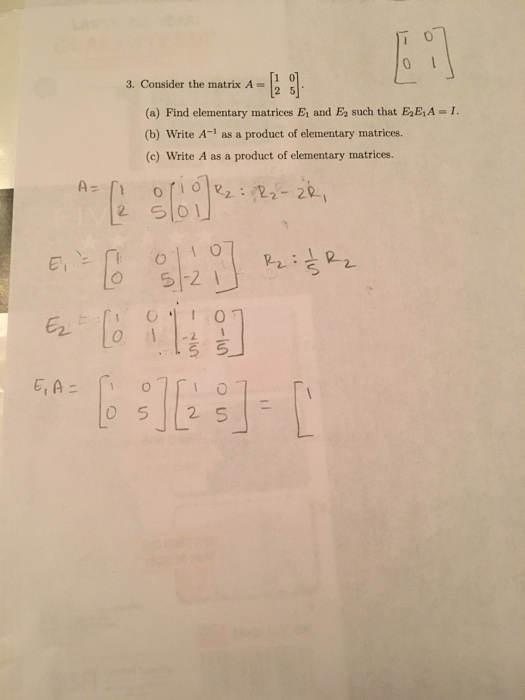 [1 0
0 1]
3. Consider the matrix A = [1 0
2 5].
(a) Find elementary matrices E₁ and E₂ such that E₂E₁A = I.
(b) Write A⁻¹ as a product of elementary matrices.
(c) Write A as a product of elementary matrices.
A = [1 0 | 1 0
2 5 | 0 1] R₂ : R₂ - 2R₁
E₁ = [1 0 | 1 0
0 5 | -2 1] R₂ : 1/5 R₂
E₂ = [1 0 | 1 0
0 1 | -2/5 1/5]
E₁A = [1 0
0 5] [1 0
2 5] = [1